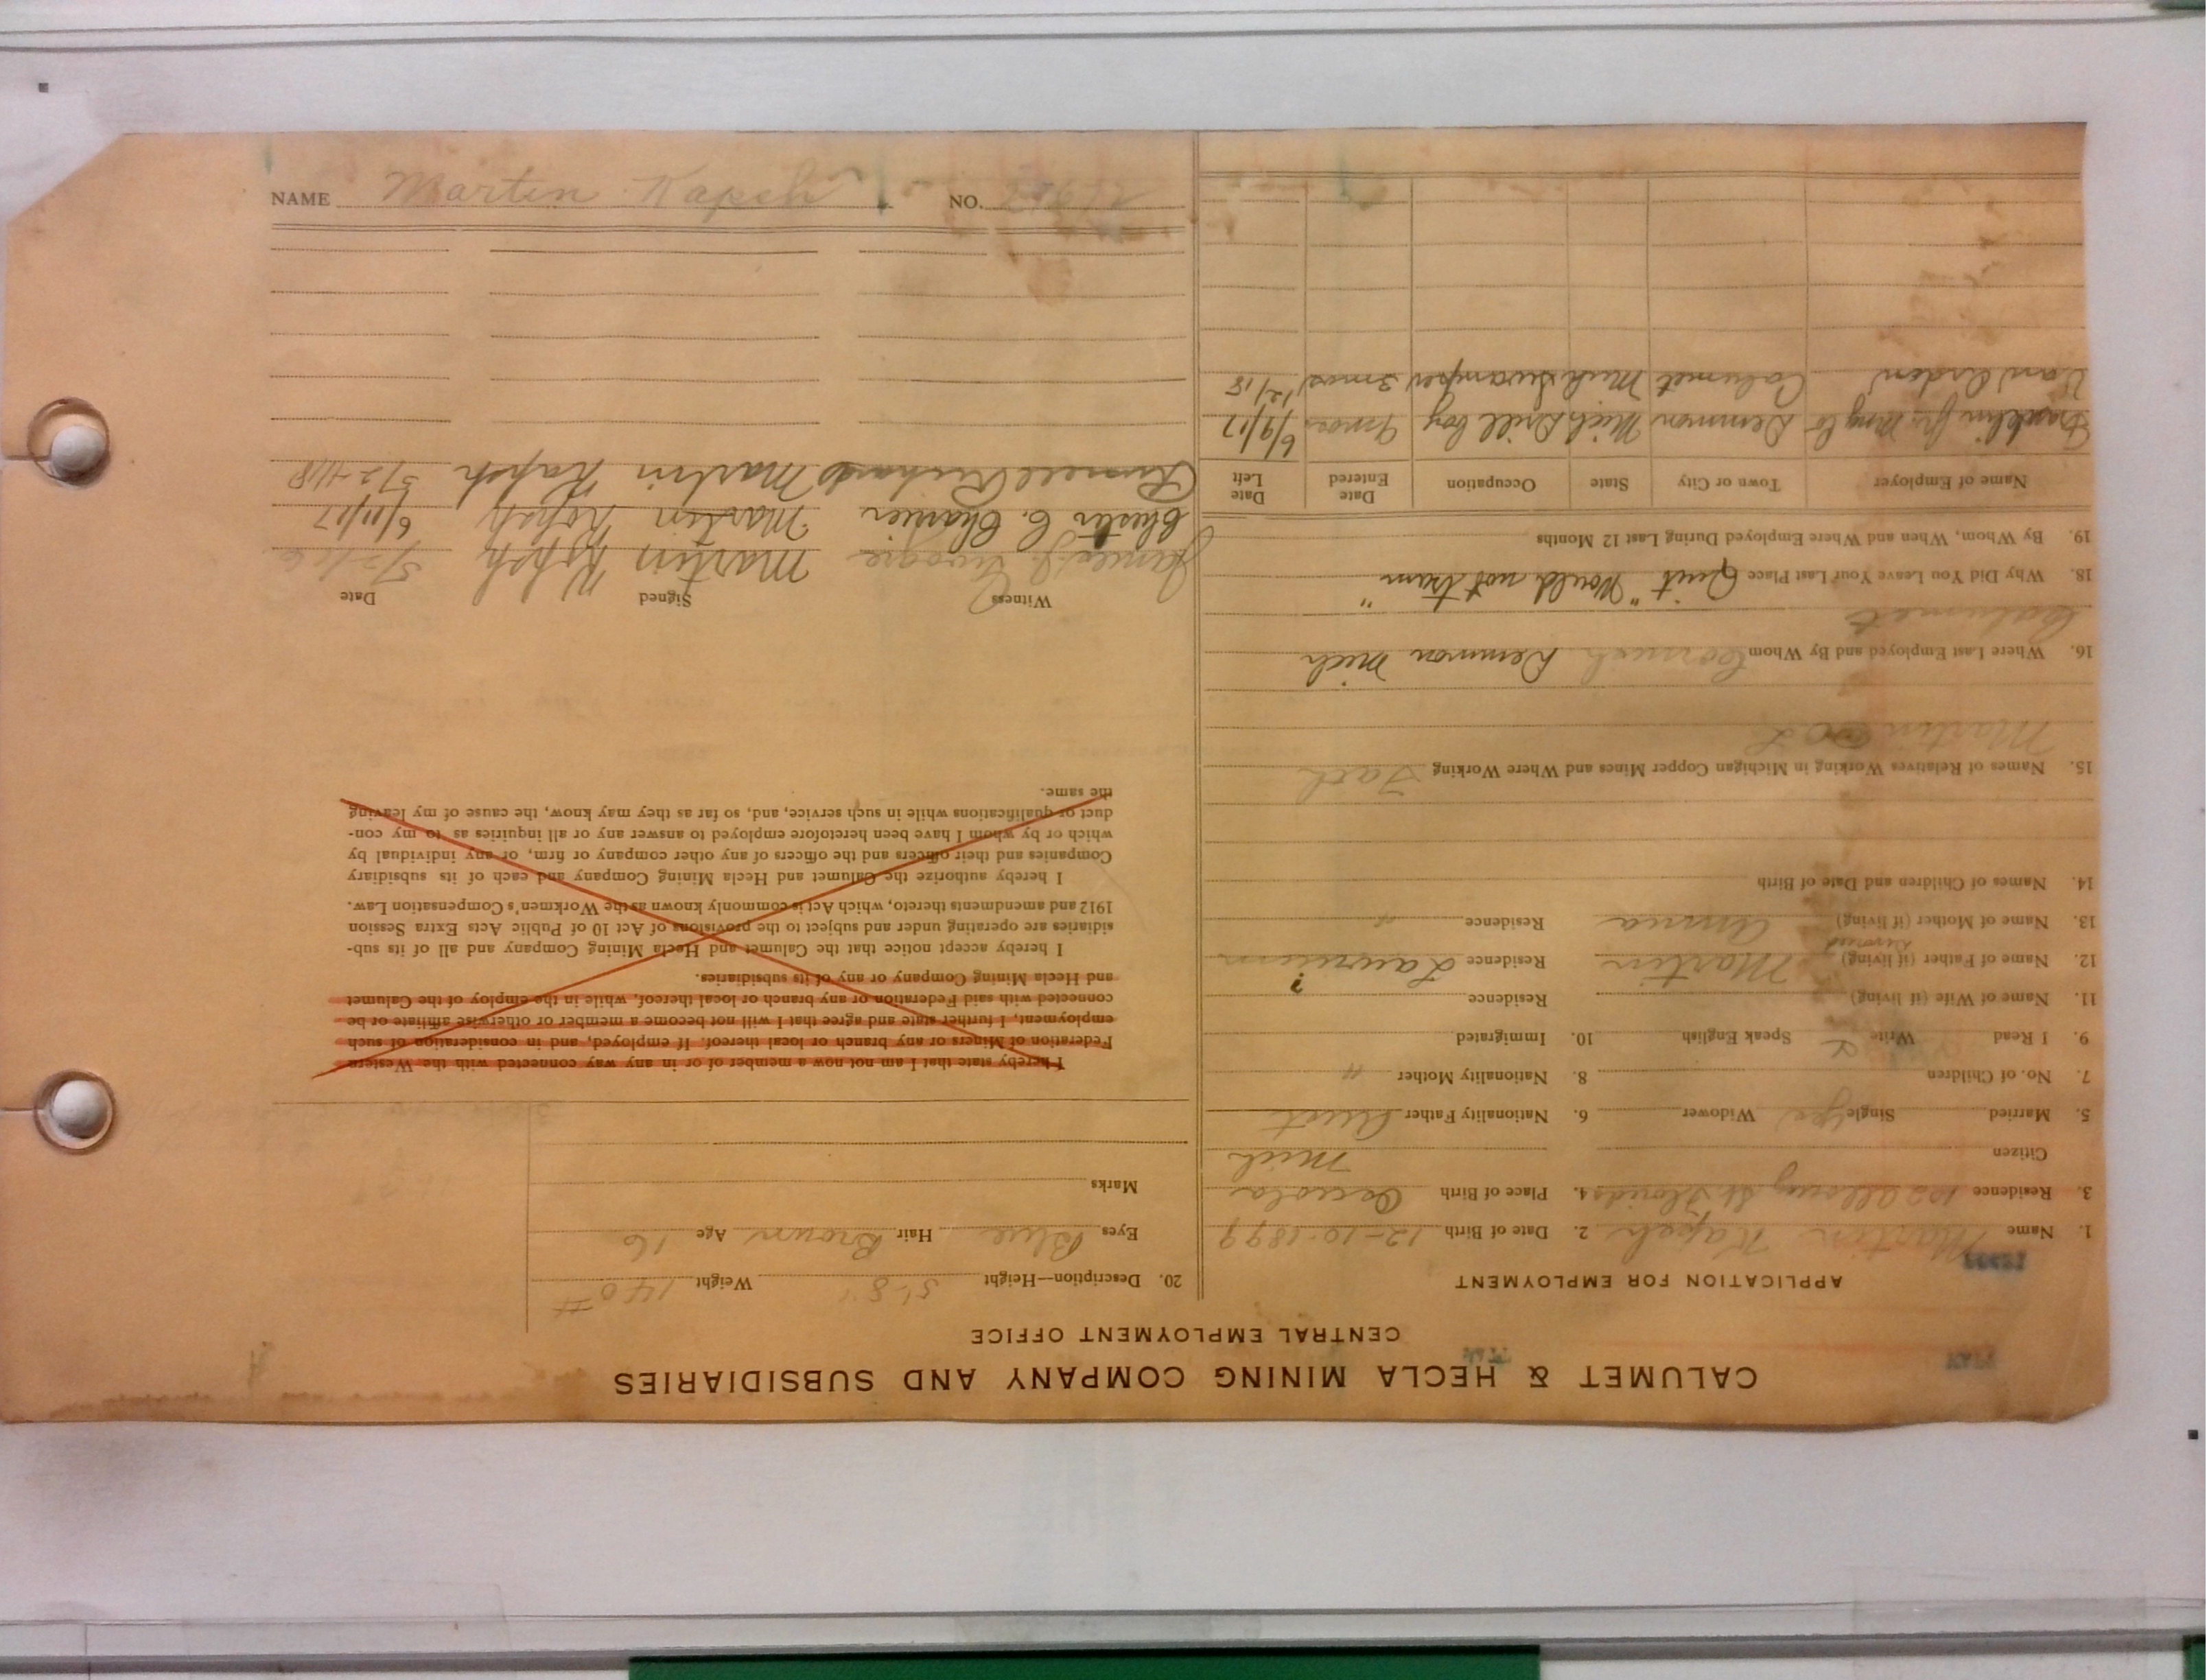 CALUMET & HECLA MINING COMPANY AND SUBSIDIARIES
CENTRAL EMPLOYMENT OFFICE
APPLICATION FOR EMPLOYMENT
1. Name Martin Kapsh 2. Date of Birth 12-10-1899
3. Residence 102 St. 4. Place of Birth Osceola
Citizen Mich
5. Married Single yes Widower 6. Nationality Father Aust
7. No. of Children 8. Nationality Mother "
9. I Read Write Speak English 10. Immigrated
11. Name of Wife (if living) Residence ?
12. Name of Father (if living) Martin Residence Laurium
13. Name of Mother (if living) Anna Residence "
14. Names of Children and Date of Birth
15. Names of Relatives Working in Michigan Copper Mines and Where Working
Martin
16. Where Last Employed and By Whom Demmon Mich
Calumet
18. Why Did You Leave Your Last Place Quit "Would not tram"
19. By Whom, When and Where Employed During Last 12 Months
Name of Employer Town or City State Occupation Date Entered Date Left
Franklin Jr. Demmon Mich Drill boy 9 mos 6/9/17
Calumet Mich Swamper 3 mos 12/18
20. Description—Height 5'-8" Weight 140 #
Eyes Blue Hair Brown Age 16
Marks
I hereby state that I am not now a member of or in any way connected with the Western
Federation of Miners or any branch or local thereof. If employed, and in consideration of such
employment, I further state and agree that I will not become a member or otherwise affiliate or be
connected with said Federation or any branch or local thereof, while in the employ of the Calumet
and Hecla Mining Company or any of its subsidiaries.
I hereby accept notice that the Calumet and Hecla Mining Company and all of its sub-
sidiaries are operating under and subject to the provisions of Act 10 of Public Acts Extra Session
1912 and amendments thereto, which Act is commonly known as the Workmen's Compensation Law.
I hereby authorize the Calumet and Hecla Mining Company and each of its subsidiary
Companies and their officers and the officers of any other company or firm, or any individual by
which or by whom I have been heretofore employed to answer any or all inquiries as to my con-
duct or qualifications while in such service, and, so far as they may know, the cause of my leaving
the same.
Witness Signed Date
James J. Martin Kapsh
Chester C. Martin Kopsh 6/11/17
Russell Richards Martin Kapsh
NAME Martin Kapsh NO.